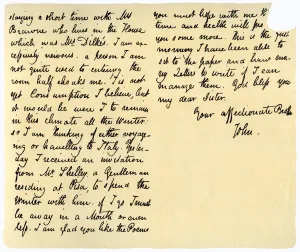 staying a short time with Mrs
Brawne who lives in the House
which was Mr Dilke's. I am ex-
cessively nervous: a person I am
not quite used to entering the
room half chokes me. 'Tis not
yet Consumption I believe, but
it would be were I to remain
in this climate all the Winter:
so I am thinking of either voyag-
ing or travelling to Italy. Yester-
day I received an invitation
from Mr Shelley, a Gentleman
residing at Pisa, to spend the
Winter with him: if I go I must
be away in a Month or even
less. I am glad you like the Poems
you must hope with me that
time and health will produce
you some more. This is the first
morning I have been able to
sit to the paper and have many
Letters to write if I can
manage them. God bless you
my dear Sister.
Your affectionate Brother
John